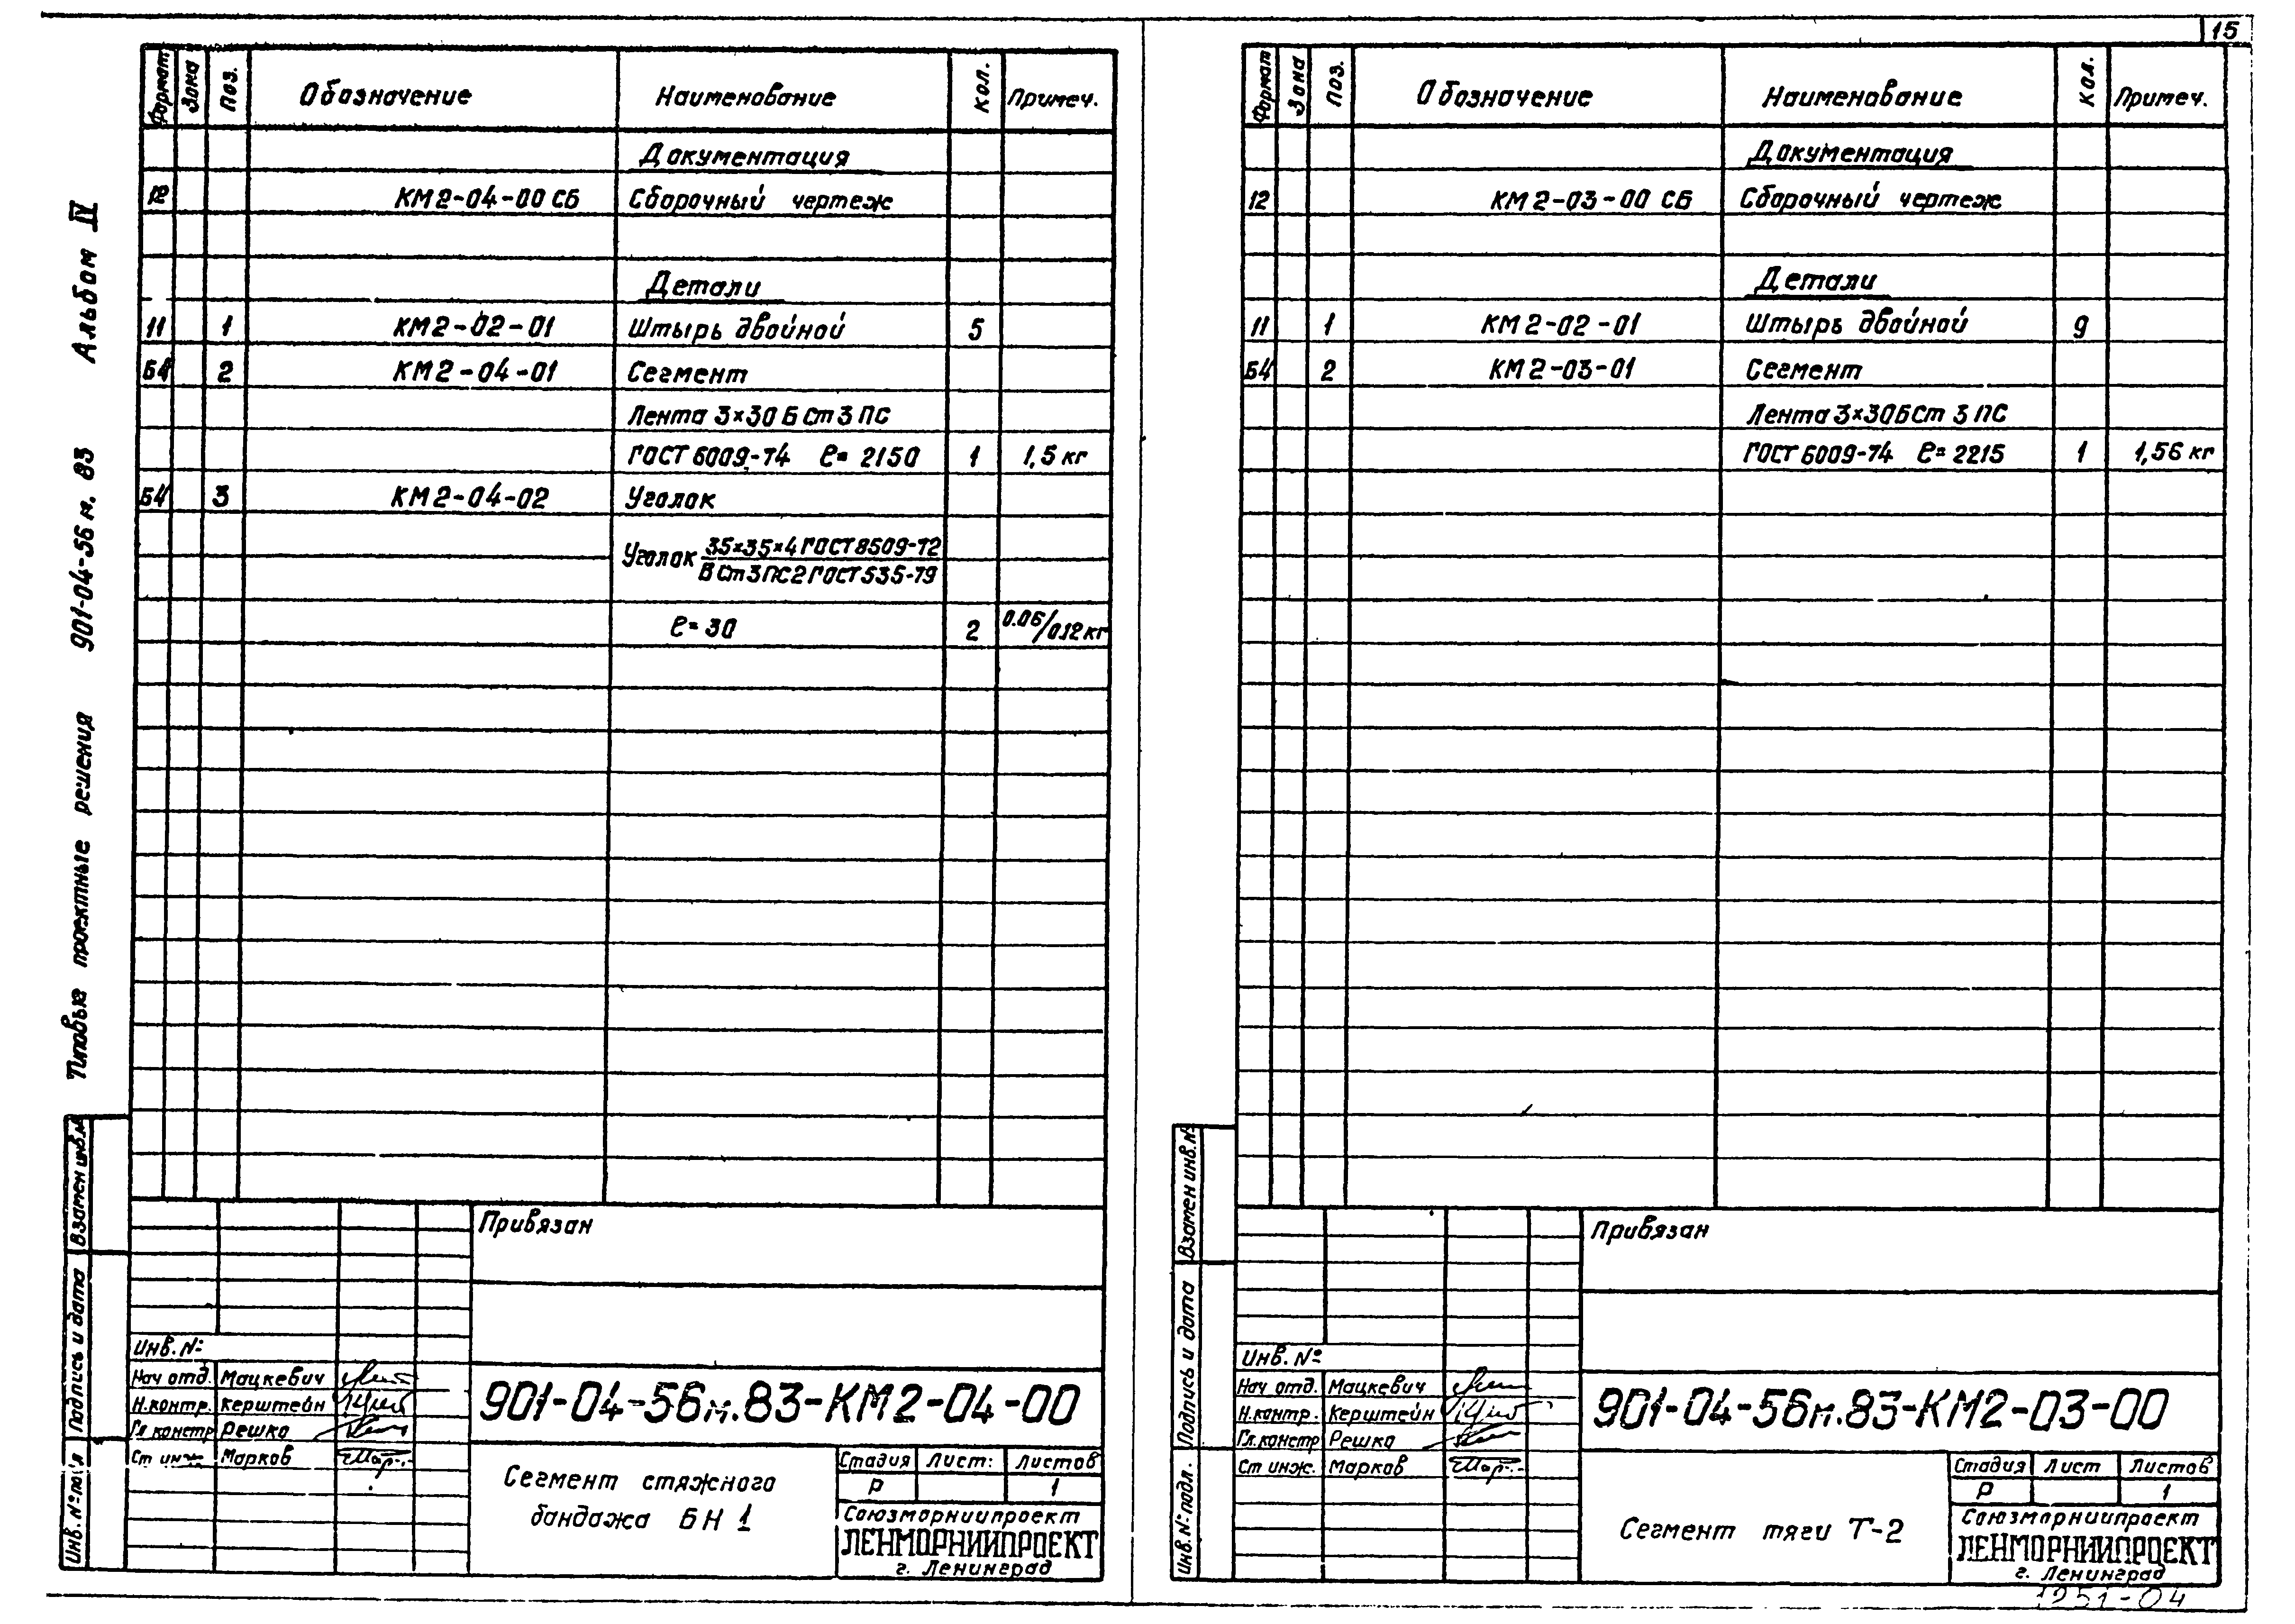 15
Альбом IV
901-04-56 м. 83
Типовые проектные решения
Формат Зона Поз. Обозначение Наименование Кол. Примеч.
Документация
12 КМ2-04-00 СБ Сборочный чертеж
Детали
11 1 КМ2-02-01 Штырь двойной 5
Б4 2 КМ2-04-01 Сегмент
Лента 3×30 Б Ст 3 ПС
ГОСТ 6009-74 ℓ= 2150 1 1,5 кг
Б4 3 КМ2-04-02 Уголок
Уголок 35×35×4 ГОСТ 8509-72
В Ст 3 ПС2 ГОСТ 535-79
ℓ= 30 2 0.06/0.12 кг
Взамен инв.№
Подпись и дата
Инв. № подл
Привязан
Инв. №
Нач отд. Мацкевич
Н.контр. Керштейн
Гл.констр Решко
Ст инж Марков
901-04-56м.83-КМ2-04-00
Сегмент стяжного
бандажа БН 1
Стадия Лист: Листов
Р 1
Союзморниипроект
ЛЕНМОРНИИПРОЕКТ
г. Ленинград
Формат Зона Поз. Обозначение Наименование Кол. Примеч.
Документация
12 КМ2-03-00 СБ Сборочный чертеж
Детали
11 1 КМ2-02-01 Штырь двойной 9
Б4 2 КМ2-03-01 Сегмент
Лента 3×30 Б Ст 3 ПС
ГОСТ 6009-74 ℓ= 2215 1 1,56 кг
Взамен инв.№
Подпись и дата
Инв. № подл.
Привязан
Инв. №
Нач отд. Мацкевич
Н.контр. Керштейн
Гл.констр Решко
Ст инж. Марков
901-04-56м.83-КМ2-03-00
Сегмент тяги Т-2
Стадия Лист Листов
Р 1
Союзморниипроект
ЛЕНМОРНИИПРОЕКТ
г. Ленинград
1251-04